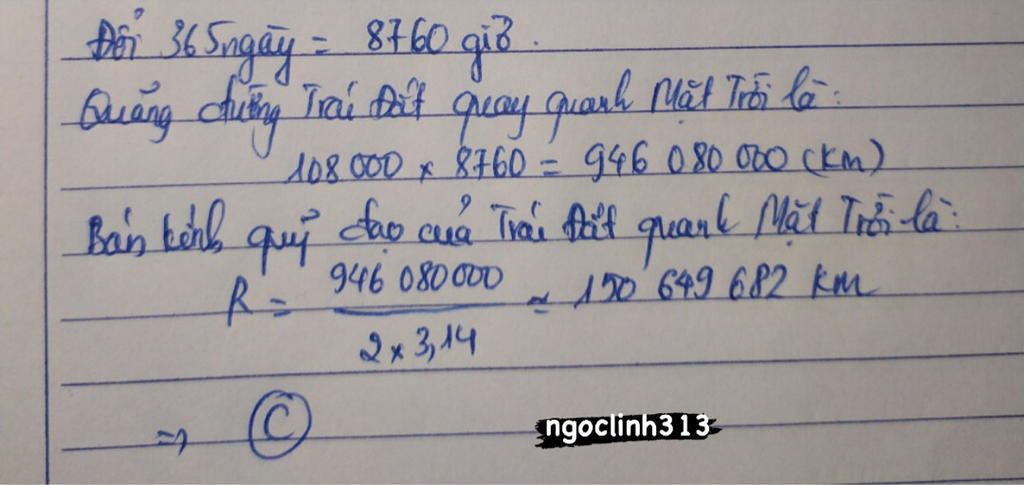 Đổi 365 ngày = 8760 giờ.
Quãng đường Trái Đất quay quanh Mặt Trời là:
108 000 x 8760 = 946 080 000 (km)
Bán kính quỹ đạo của Trái Đất quanh Mặt Trời là:
R = 946 080 000 / 2 x 3,14 ≈ 150 649 682 km
=> C
ngoclinh313